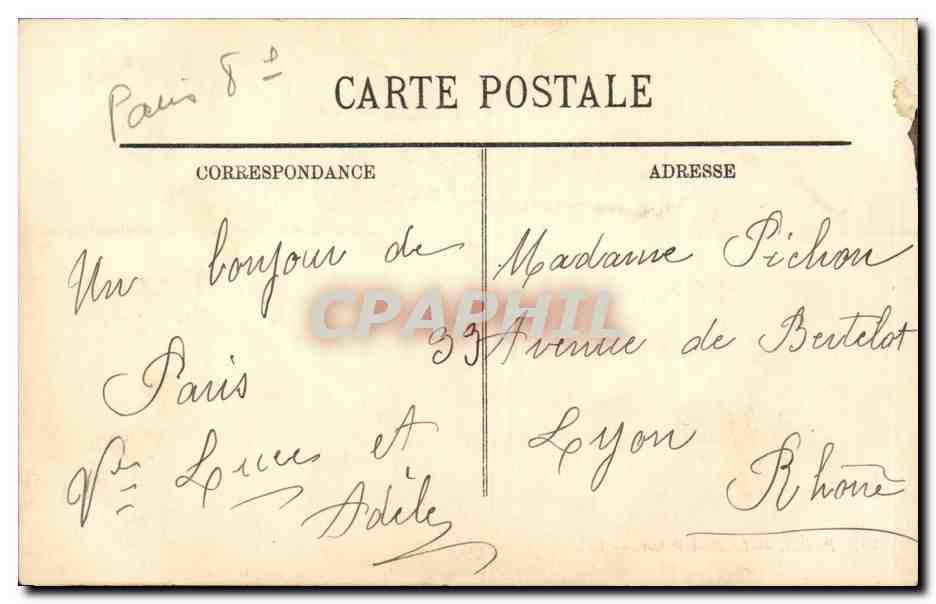 Paris 8
CARTE POSTALE
CORRESPONDANCE
Un bonjour de
Paris
et
Adèle
ADRESSE
Madame Pichon
33 Avenue de Bertelot
Lyon
Rhône
CPAPHIL